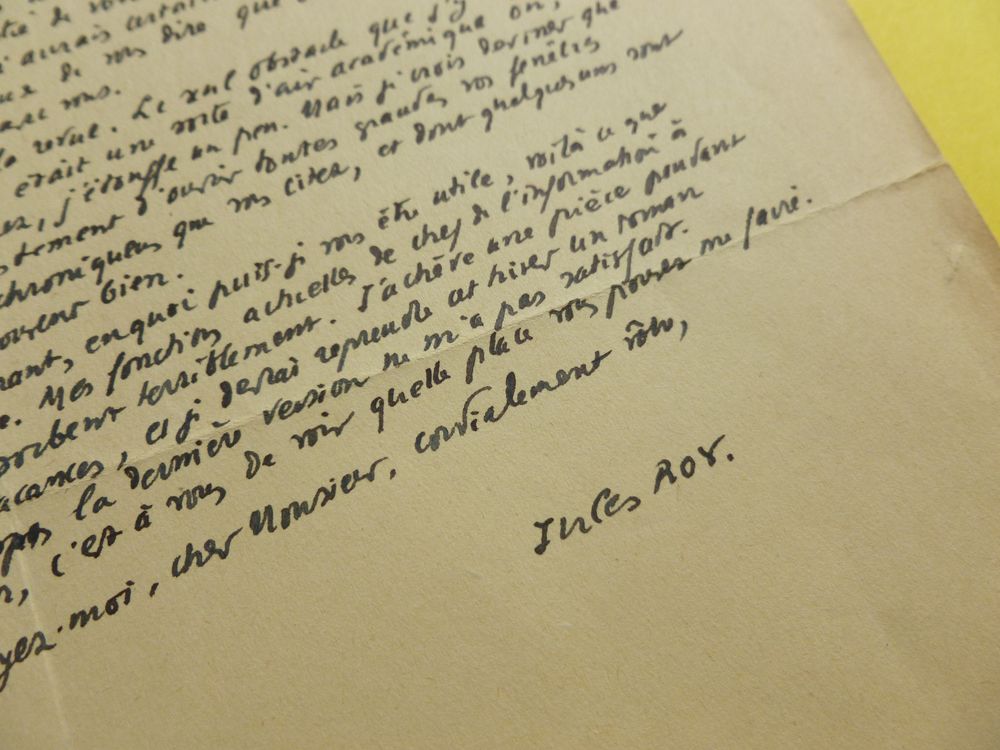 de vous dire que
avec vous.
la revue. Le seul obstacle que j'y
était une sorte d'air académique où,
j'étouffe un peu. Mais je crois deviner que
d'ouvrir toutes grandes vos fenêtres
chroniqueurs que vous citez, et dont quelques uns sont
bien.
en quoi puis-je vous être utile, voilà ce que
Mes fonctions actuelles de chef de l'information à
terriblement. J'achève une pièce pendant
et je devrai reprendre cet hiver un roman
la dernière version ne m'a pas satisfait.
c'est à vous de voir quelle place vous pouvez me
yez-moi, cher Monsieur, cordialement vôtre,
Jules Roy.